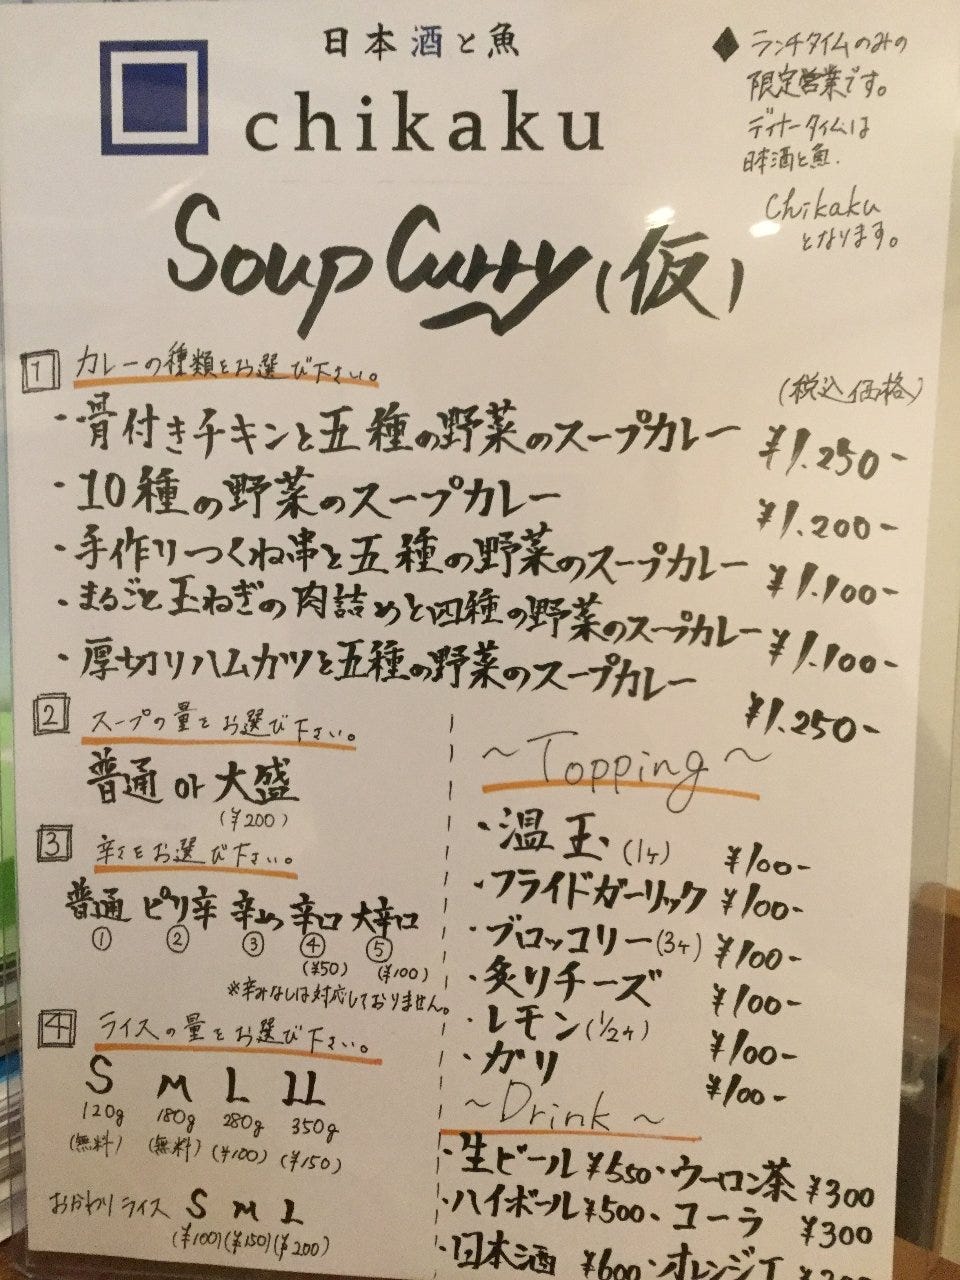 日本酒と魚
chikaku
◆ランチタイムのみの
限定営業です。
ディナータイムは
日本酒と魚.
Chikaku
となります。
Soup Curry(仮)
1 カレーの種類をお選び下さい。
(税込価格)
・骨付きチキンと五種の野菜のスープカレー ¥1.250-
・10種の野菜のスープカレー ¥1.200-
・手作りつくね串と五種の野菜のスープカレー ¥1.100-
・まるごと玉ねぎの肉詰めと四種の野菜のスープカレー ¥1.100-
・厚切りハムカツと五種の野菜のスープカレー ¥1.250-
2 スープの量をお選び下さい。
普通 or 大盛
(¥200)
3 辛さをお選び下さい。
普通 ピリ辛 辛め 辛口 大辛口
① ② ③ ④ ⑤
(¥50) (¥100)
※辛みなしは対応しておりません。
4 ライスの量をお選び下さい。
S M L LL
120g 180g 280g 350g
(無料) (無料) (¥100) (¥150)
おかわりライス S M L
(¥100) (¥150) (¥200)
~Topping~
・温玉(1ヶ) ¥100-
・フライドガーリック ¥100-
・ブロッコリー(3ヶ) ¥100-
・炙りチーズ ¥100-
・レモン(1/2ヶ) ¥100-
・ガリ ¥100-
~Drink~
・生ビール ¥550・ウーロン茶 ¥300
・ハイボール ¥500・コーラ ¥300
・日本酒 ¥600・オレンジ